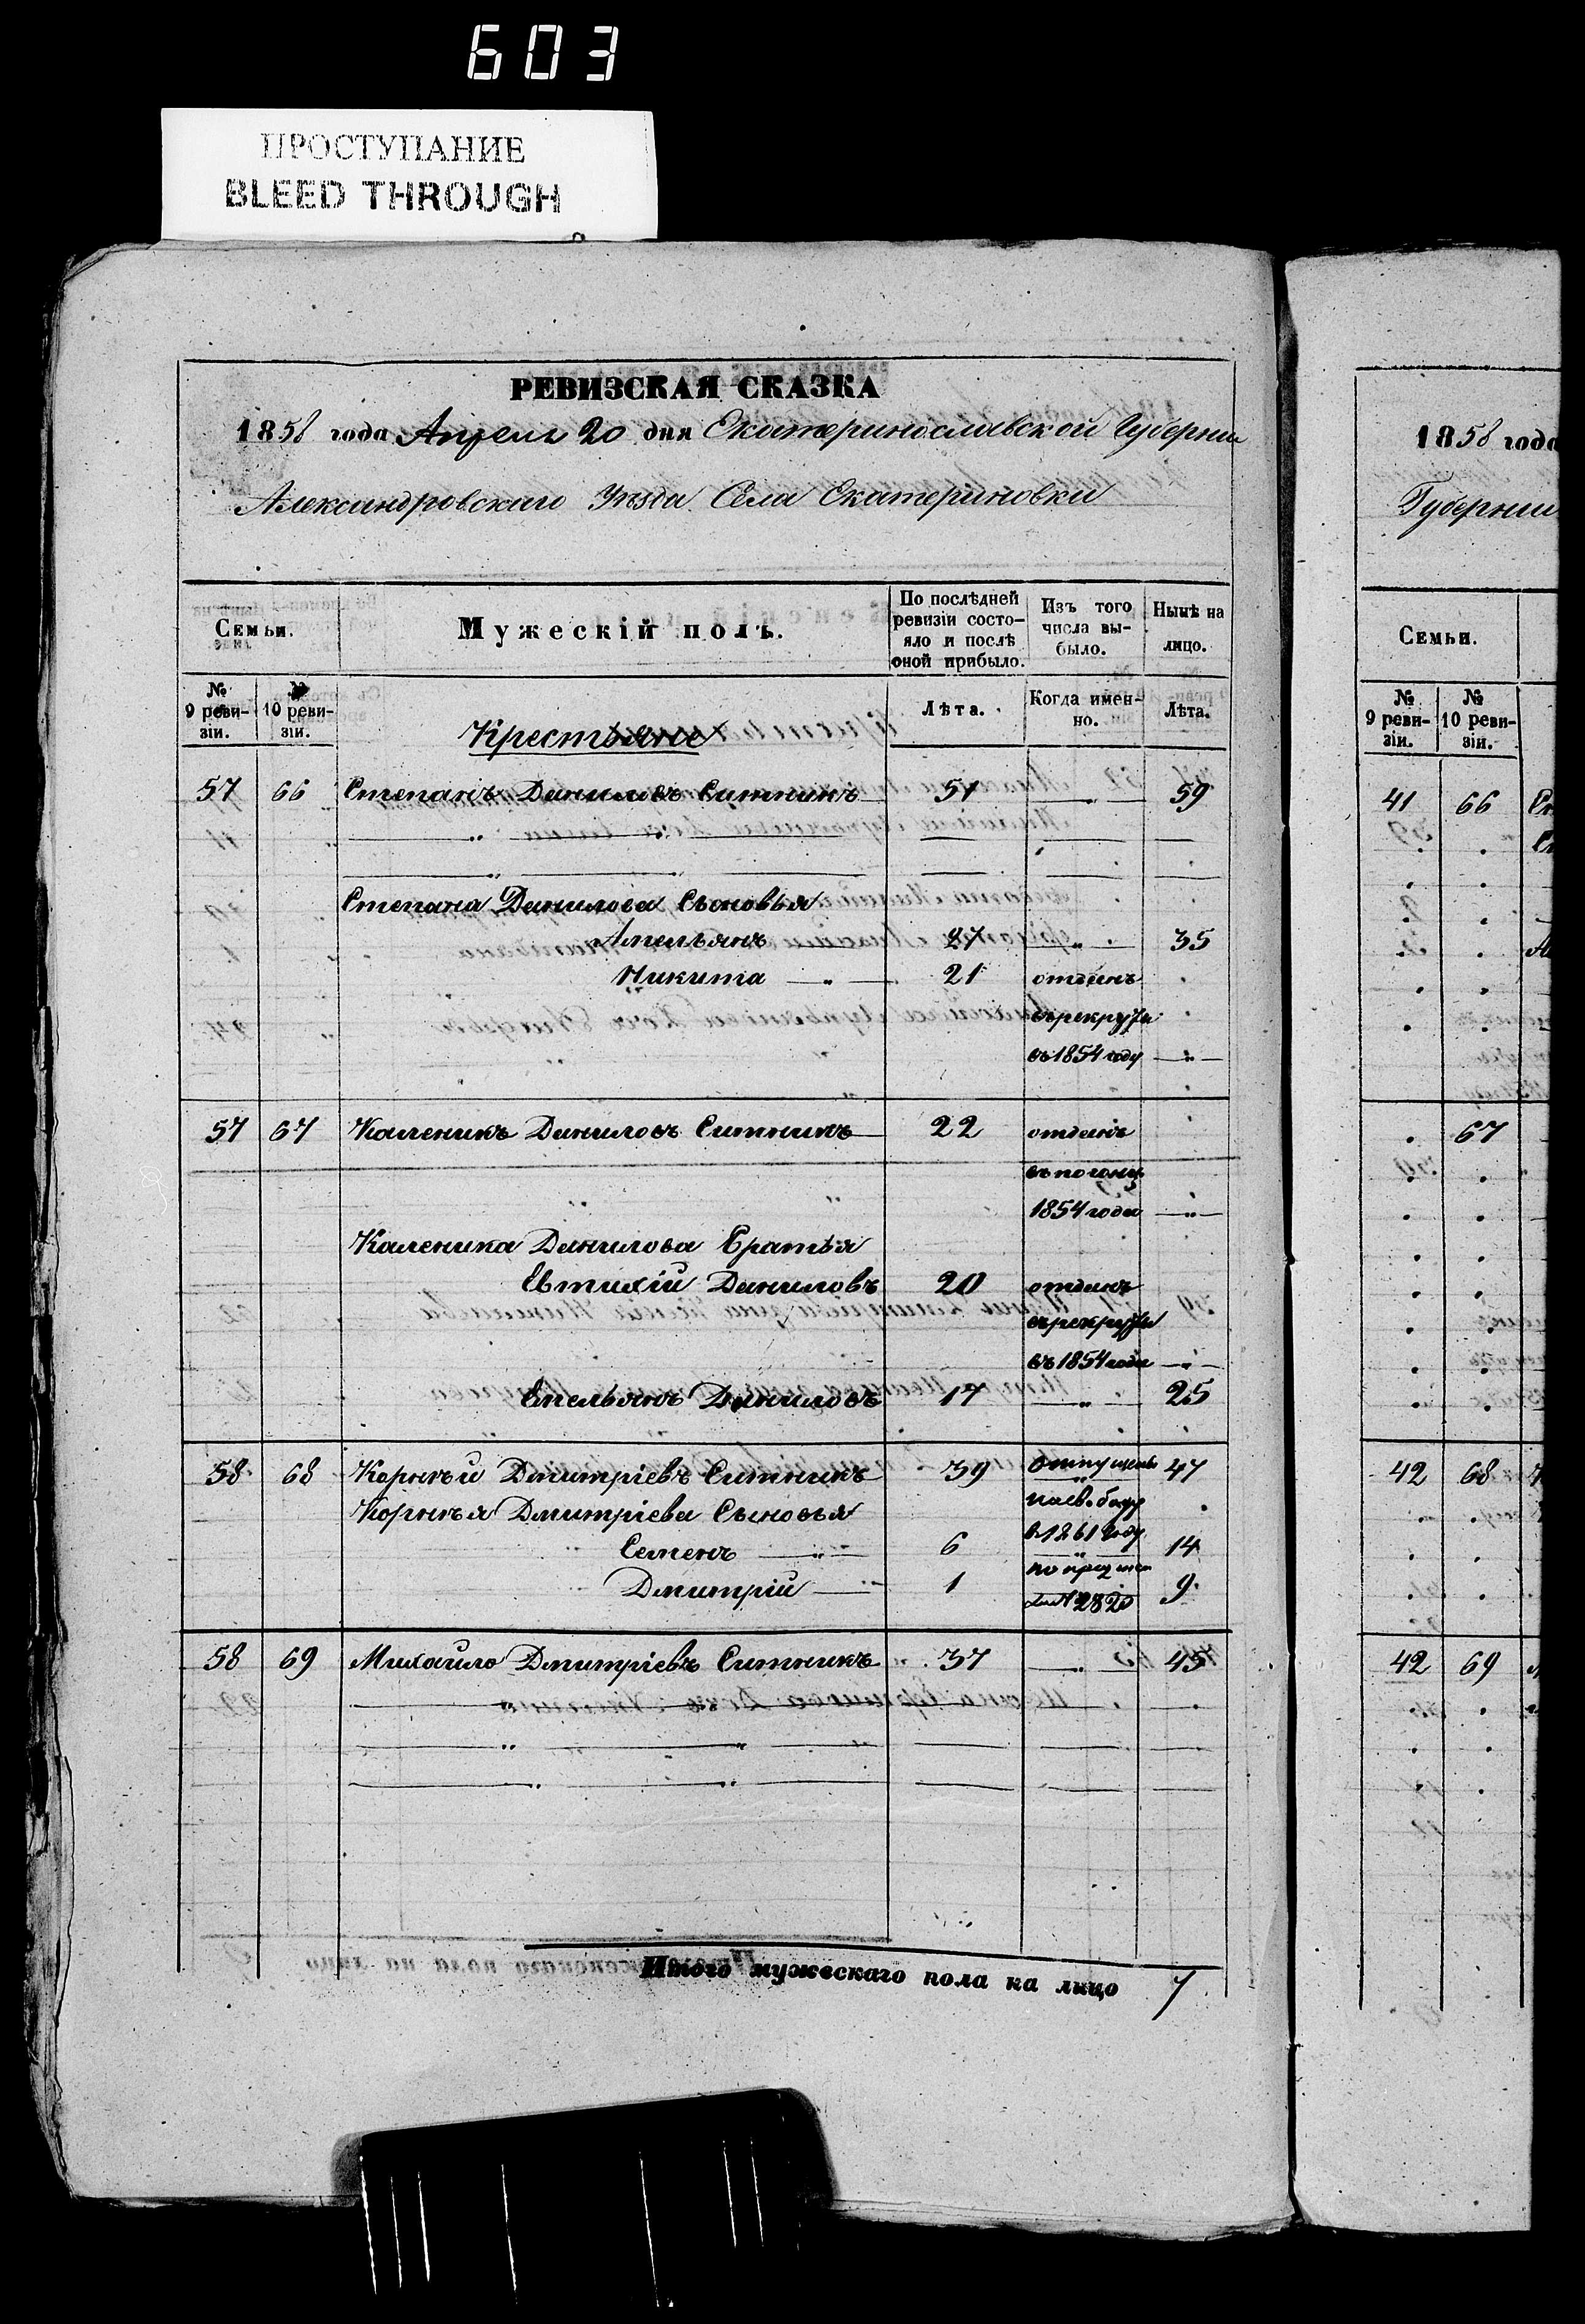 603
ПРОСТУПАНИЕ
BLEED THROUGH
РЕВИЗСКАЯ СКАЗКА
1858 года Апреля 20 дня Екатеринославской Губернии
Александровскаго Уѣзда Села Екатериновки
Семьи.
Мужескій полъ.
По послѣдней ревизіи состояло и послѣ оной прибыло.
Изъ того числа выбыло.
Нынѣ на лицо.
№ 9 ревизіи.
№ 10 ревизіи.
Крестьяне
Лѣта.
Когда именно.
Лѣта.
57 66 Степанъ Даниловъ Ситникъ 51 — „ — 59
Степана Данилова Сыновья
Амельянъ 27 „ 35
Никита — „ — 21 отданъ
въ рекруты
въ 1854 году — „ —
57 67 Каленикъ Даниловъ Ситникъ 22 отданъ
1854 года — „ —
Каленика Данилова Братья
Евтихій Даниловъ 20 отданъ
въ рекруты
въ 1854 года — „ —
Емельянъ Даниловъ 17 — „ — 25
58 68 Корнѣй Дмитріевъ Ситникъ 39 Отпущенъ 47
Корнѣя Дмитріева Сыновья
Семенъ — „ — 6 14
Дмитрій — 1 9
№ 2820
58 69 Михайло Дмитріевъ Ситникъ 37 — „ — 45
Итого мужескаго пола на лицо 7
1858 года
Губернии
Семьи.
№ 9 ревизіи.
№ 10 ревизіи.
41 66
67
42 68
42 69